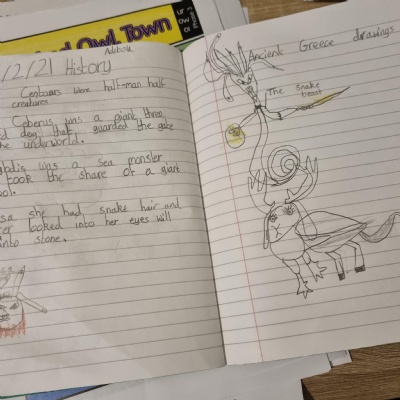 Owl Town
/2/21 History
Centaurs were half-man half
creatures
Ceberus was a giant three
d dog that guarded the gate
he underworld.
bdis was a sea monster
took the shape of a giant
ool.
sa she had snake hair and
er looked into her eyes will
into stone.
Ancient Greece drawings
The snake
beast